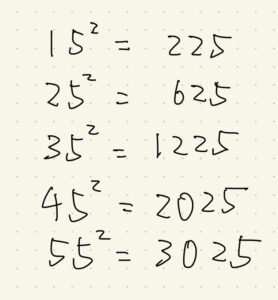 15² = 225
25² = 625
35² = 1225
45² = 2025
55² = 3025